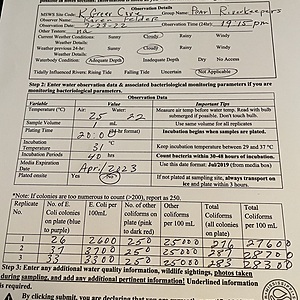 Observation Details
MEWS Site Code: K Greer Cove Group Name: Pearl Riverkeepers
Observer Name: Karen Felder
Observation Date: 9-28-22 Observation Time (24hr): 19:15 pm
Other Testers: na
Current Weather Conditions: Sunny Cloudy Rainy Windy
Weather Details:
Weather previous 24-hr: Sunny Cloudy Rainy Windy
Weather Details:
Waterbody Condition: Adequate Depth Inadequate Depth Dry No Access
Tidally Influenced Rivers: Rising Tide Falling Tide Uncertain Not Applicable
Step 2: Enter water observation data & associated bacteriological monitoring parameters if you are
monitoring bacteriological parameters.
Observation Data
Variable Value Important Tips
Temperature (°C) Air: Water: Measure air before water temp. Read with bulb
25 22 submerged if possible. Don't touch bulb.
Sample Volume 1 mL Use same volume for all replicates
Plating Time 20:00 (24-hr format) Incubation begins when samples are plated.
Incubation
Temperature 31 °C Keep incubation temperature between 29 and 37 °C
Incubation Periods 40 hrs Count bacteria within 30-48 hours of incubation.
Media Expiration
Date April/2023 Use this date format: Jul/2019 (from media box)
Plated onsite Yes No If not plated at sampling site, always transport on
ice and plate within 3 hours.
*Note: If colonies are too numerous to count (>200), report as 250.
Replicate No. No. of E. Coli colonies on plate (blue to purple) E. Coli Per 100mL No. of other coliforms on plate (pink to dark red) Other coliforms per 100mL Total Coliforms (all colonies on plate) Total Coliforms per 100 mL
1 26 2600 250 25000 276 27600
2 37 3700 250 25000 287 28700
3 33 3300 250 25000 283 28300
Step 3: Enter any additional water quality information, wildlife sightings, photos taken
during sampling, and add any additional pertinent information! Underlined information
is required.
By clicking submit, you are declaring that you are